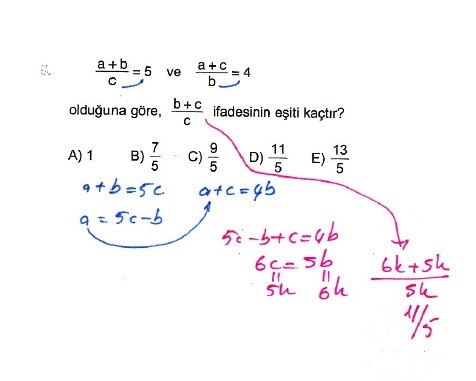 8.
a+b/c = 5 ve a+c/b = 4
olduğuna göre, b+c/c ifadesinin eşiti kaçtır?
A) 1 B) 7/5 C) 9/5 D) 11/5 E) 13/5
a+b=5c a+c=4b
a=5c-b
5c-b+c=4b
6c=5b
= =
5k 6k
6k+5k/5k
11/5